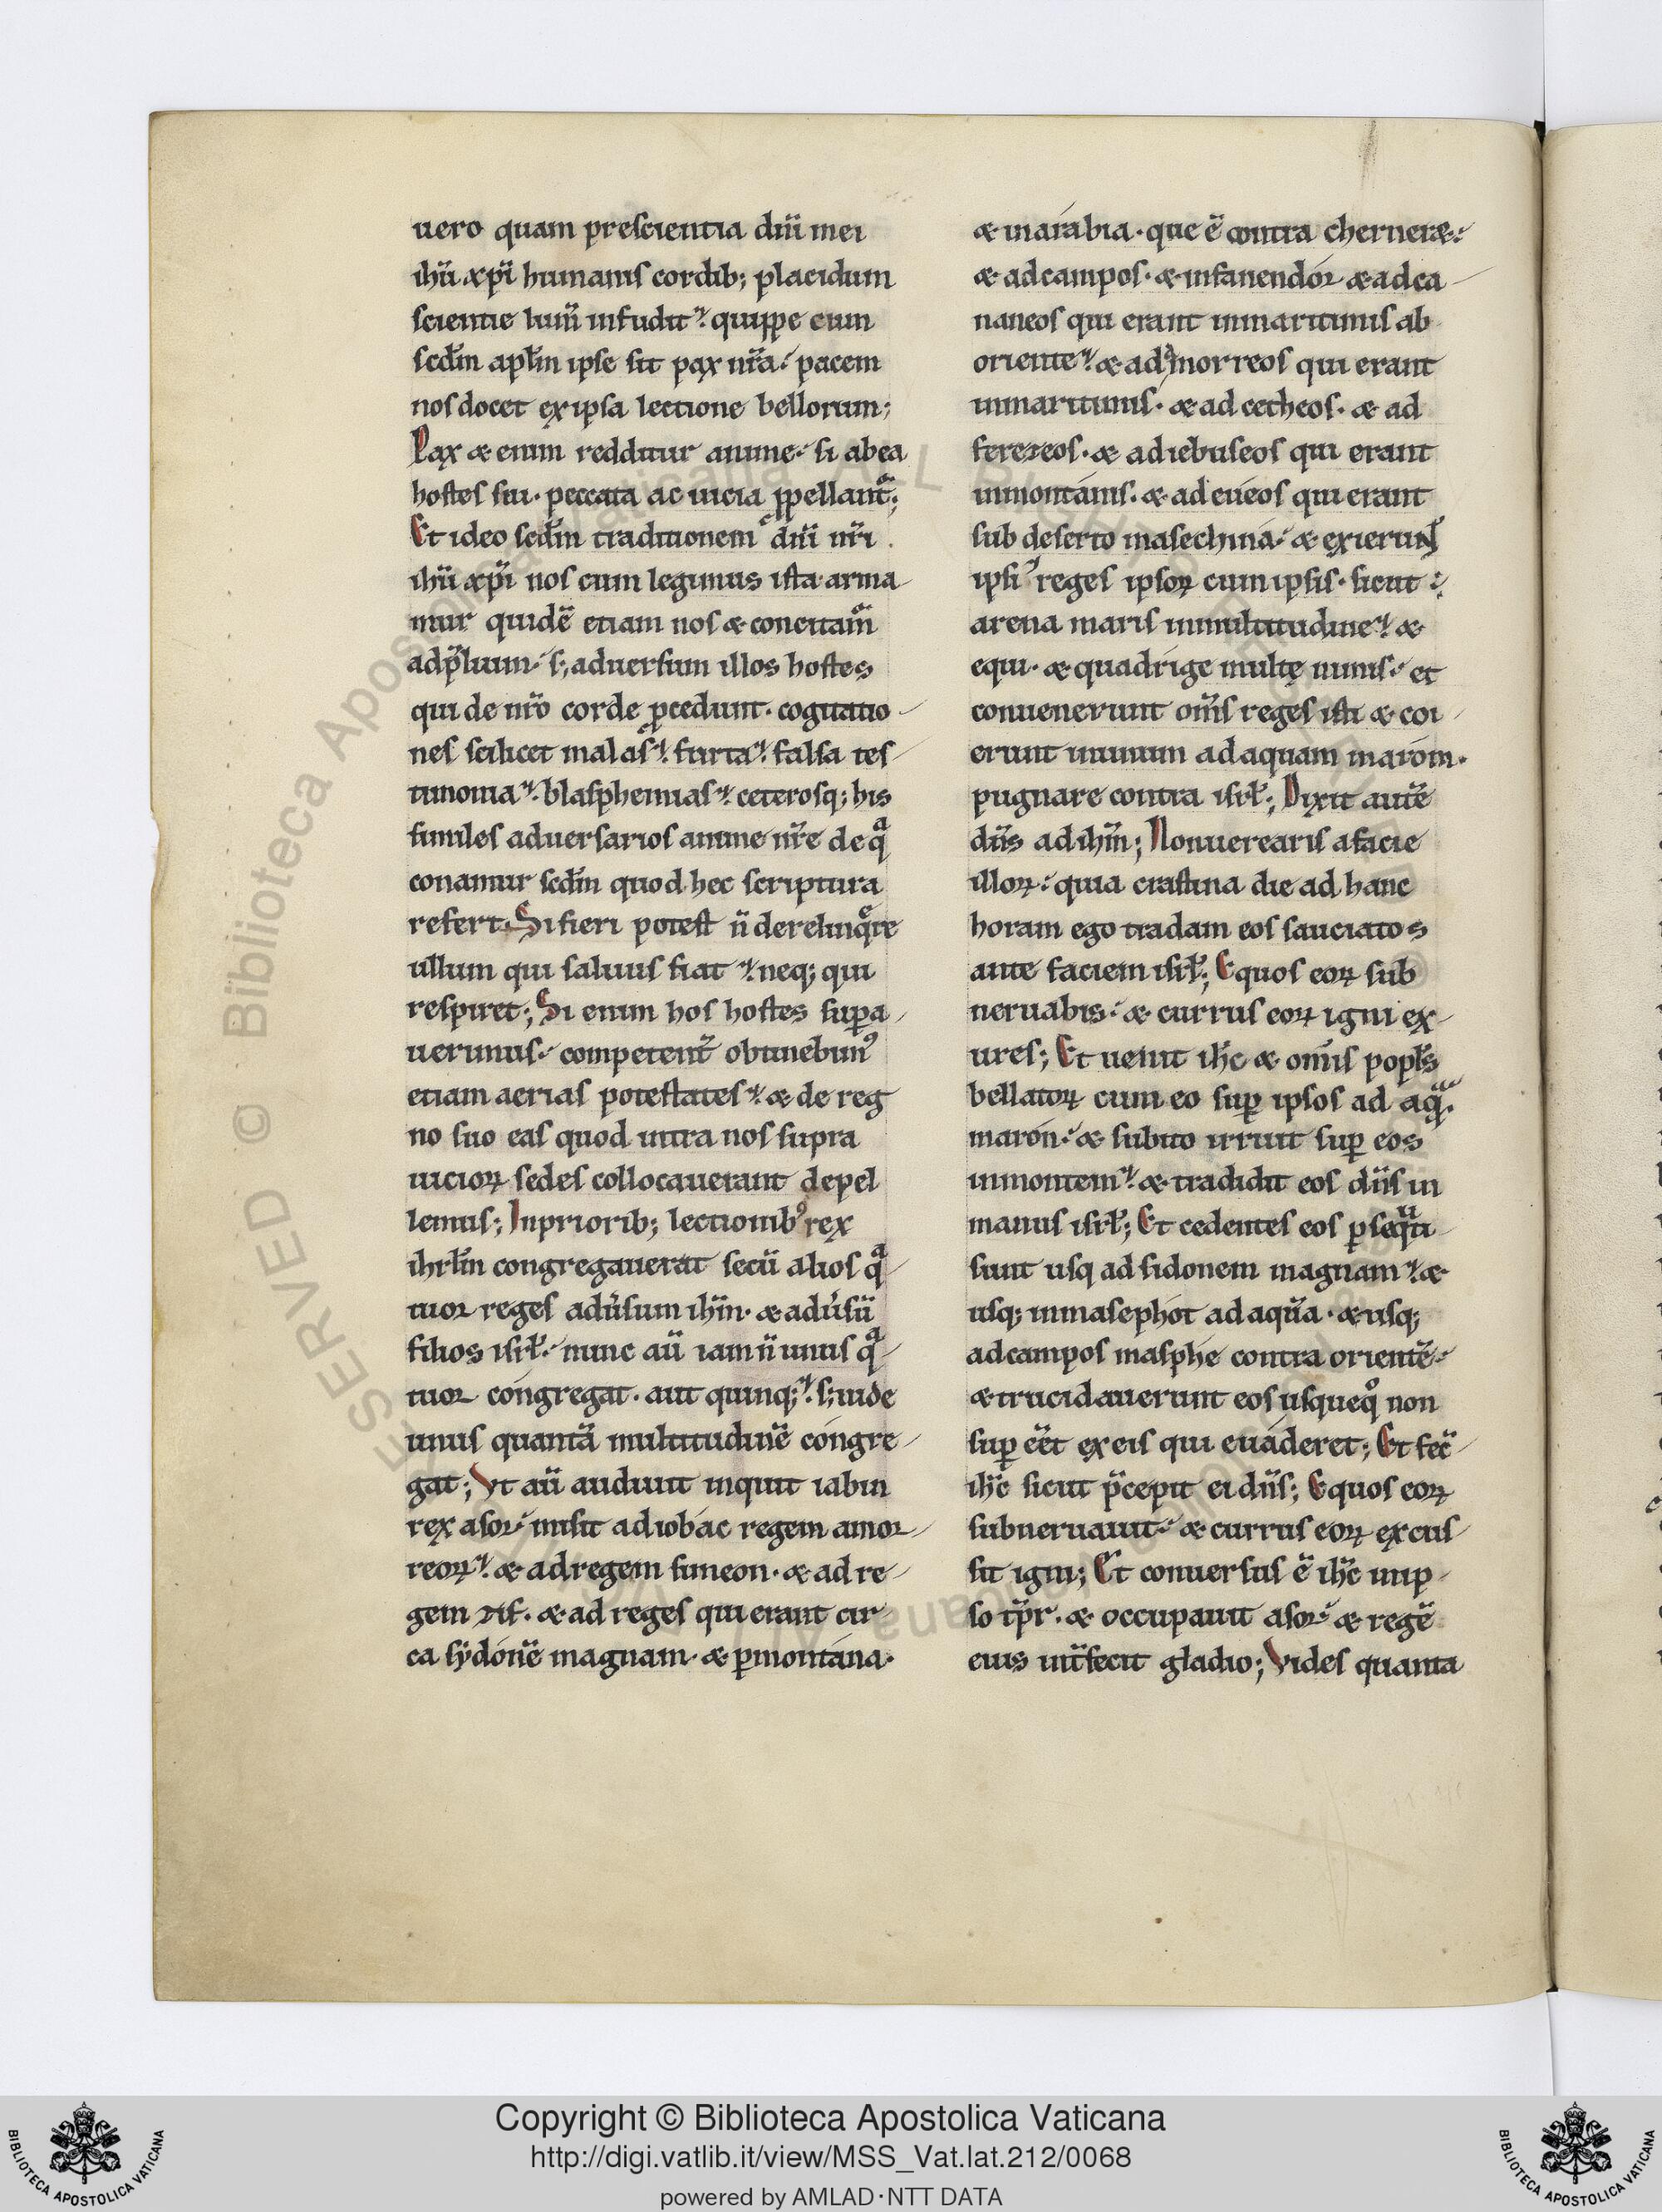 uero quam prescientia dñi mei
ihũ xp̃i humanis cordib; placidum
scientie lum̃ infudit. quippe cum
scd̃m apl̃m ipse sit pax nr̃a. pacem
nos docet ex ipsa lectione bellorum;
Pax & enim redditur anime. si ab ea
hostes sui. peccata ac uicia ꝓpellant̃;
Et ideo scd̃m traditionem dñi nr̃i
ihũ xp̃i nos cum legimus ista arma
mur quidẽ etiam nos & concitam̃
ad p̃lium. s; aduersum illos hostes
qui de nr̃o corde ꝓcedunt. cogitatio
nes scilicet malas. furta. falsa tes
timonia. blasphemias. ceterosq; his
similes aduersarios anime nr̃e de qª
conamur scd̃m quod hec scriptura
refert. Si fieri potest ñ derelinq̃re
ullum qui saluus fiat. neq; qui
respiret; Si enim hos hostes suꝑa
uerimus. competent̃ obtinebimꝰ
etiam aerias potestates. & de reg
no suo eas quod intra nos supra
uicioꝝ sedes collocauerant depel
lemus; Inpriorib; lectionibꝰ rex
ihrl̃m congregauerat secũ alios qª
tuor reges adũsum ihm̃. & adũsũ
filios isrl̃. nunc aũ iam ñ unus qª
tuor congregat. aut quinq;. s; uide
unus quantã multitudinẽ congre
gat; Vt aũ audiuit inquit iabin
rex asor. misit ad iobac regem amor
reoꝝ. & ad regem simeon. & ad re
gem zif. & ad reges qui erant cir
ca sydonẽ magnam. & ꝑ montana.
& in arabia. que ẽ contra cherner&.
& ad campos. & infanendor & ad ca
naneos qui erant inmaritimis ab
oriente. & ad amorreos qui erant
inmaritimis. & ad cetheos. & ad
ferezeos. & ad iebuseos qui erant
inmontanis. & ad eueos qui erant
sub deserto masechina. & exierunt
ipsi ꝰ reges ipsoꝝ cum ipsis. sicut
arena maris inmultitudine. &
equi. & quadrige multę nimis. et
conuenerunt om̃s reges isti & coi
erunt inunum ad aquam marom.
pugnare contra isrl̃; Dixit autẽ
dñs ad ihm̃; Nonuerearis afacie
illoꝝ. quia crastina die ad hanc
horam ego tradam eos sauciatos
ante faciem isrl̃; Equos eoꝝ sub
neruabis. & currus eoꝝ igni ex
ures; Et uenit ihc̃ & om̃is popl̃s
bellatoꝝ cum eo suꝑ ipsos ad aqª.
maron. & subito irruit suꝑ eos
inmontem. & tradidit eos dñs in
manus isrl̃; Et cedentes eos ꝑsequti
sunt usq ad sidonem magnam. &
usq; inmasephot ad aquã. & usq;
ad campos masphe contra orientẽ.
& trucidauerunt eos usquequo non
suꝑ eẽt ex eis qui euaderet; Et fec̃
ihc̃ sicut p̃cepit ei dñs; Equos eoꝝ
subneruauit. & currus eoꝝ excus
sit igni; Et conuersus ẽ ihc̃ inip
so tp̃r. & occupauit asor. & regẽ
eius int̃fecit gladio; Vides quanta
Copyright © Biblioteca Apostolica Vaticana
http://digi.vatlib.it/view/MSS_Vat.lat.212/0068
powered by AMLAD·NTT DATA